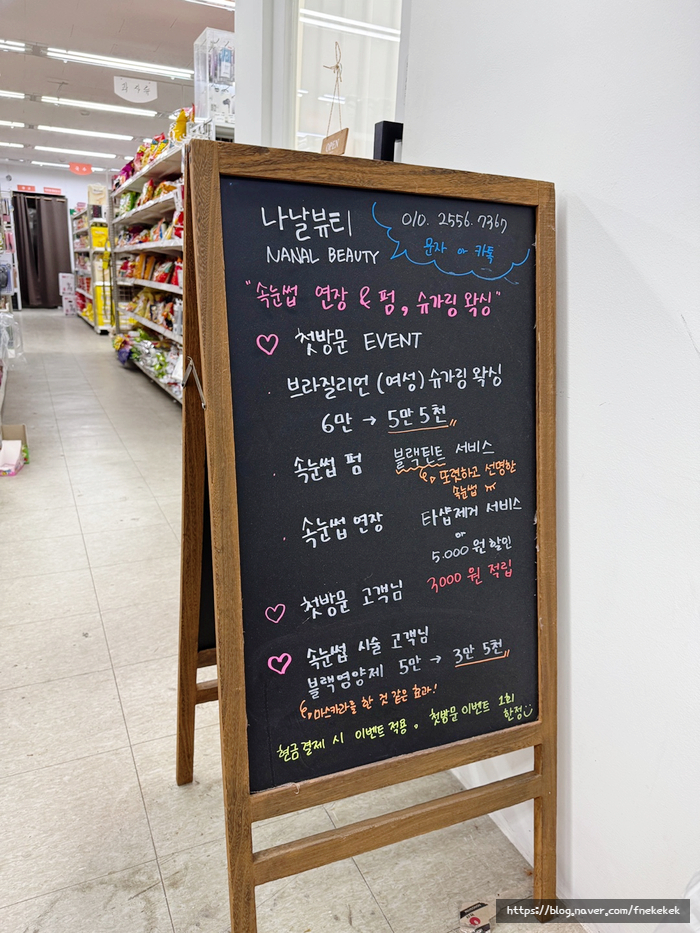 과자
OPEN
나날뷰티
NANAL BEAUTY
010. 2556. 7367
문자 or 카톡
"속눈썹 연장 & 펌, 슈가링 왁싱"
첫방문 EVENT
브라질리언 (여성) 슈가링 왁싱
6만 → 5만 5천
속눈썹 펌 블랙틴트 서비스
또렷하고 선명한
속눈썹
속눈썹 연장 타샵제거 서비스
or
5.000 원 할인
첫방문 고객님 3000 원 적립
속눈썹 시술 고객님
블랙영양제 5만 → 3만 5천
마스카라를 한 것 같은 효과!
현금결제 시 이벤트 적용. 첫방문 이벤트 1회
한정
https://blog.naver.com/fnekekek